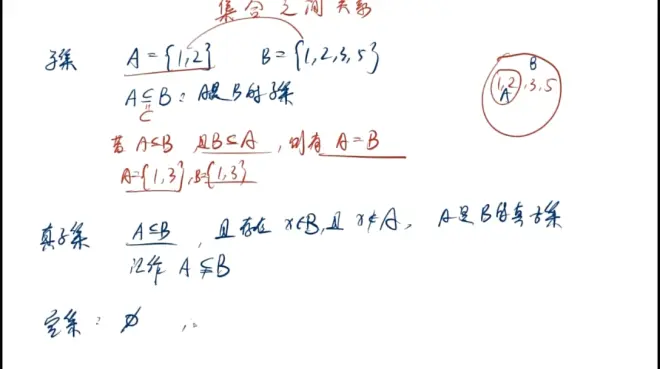 集合之间关系
子集 A={1,2} B={1,2,3,5}
B
1,2,3,5
A
A⊆B:A是B的子集
⊂
若 A⊆B 且B⊆A,则有 A=B
A={1,3},B={1,3}
真子集 A⊆B,且存在 x∈B,且 x∉A, A是B的真子集
记作 A⊊B
空集: ∅